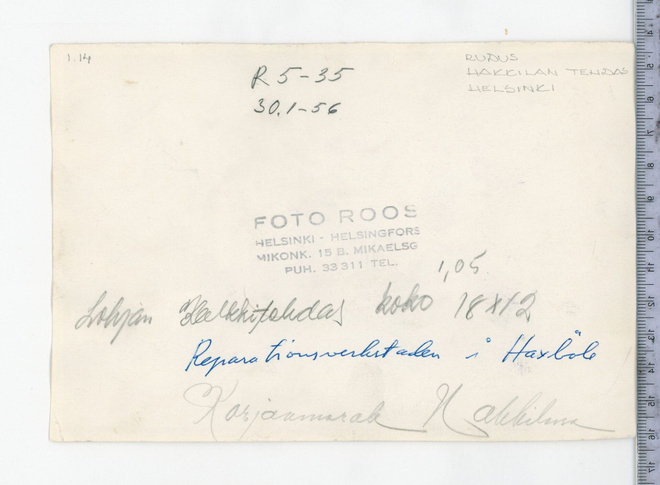 1.14
RUDUS
HAKKILAN TEHDAS
HELSINKI
R 5-35
30.1-56
FOTO ROOS
HELSINKI - HELSINGFORS
MIKONK. 15 B. MIKAELSG
PUH. 33 311 TEL.
1,05
Lohjan Kalkkitehdas koko 18x12
Reparationsverkstaden i Haxböle
Hakkilassa